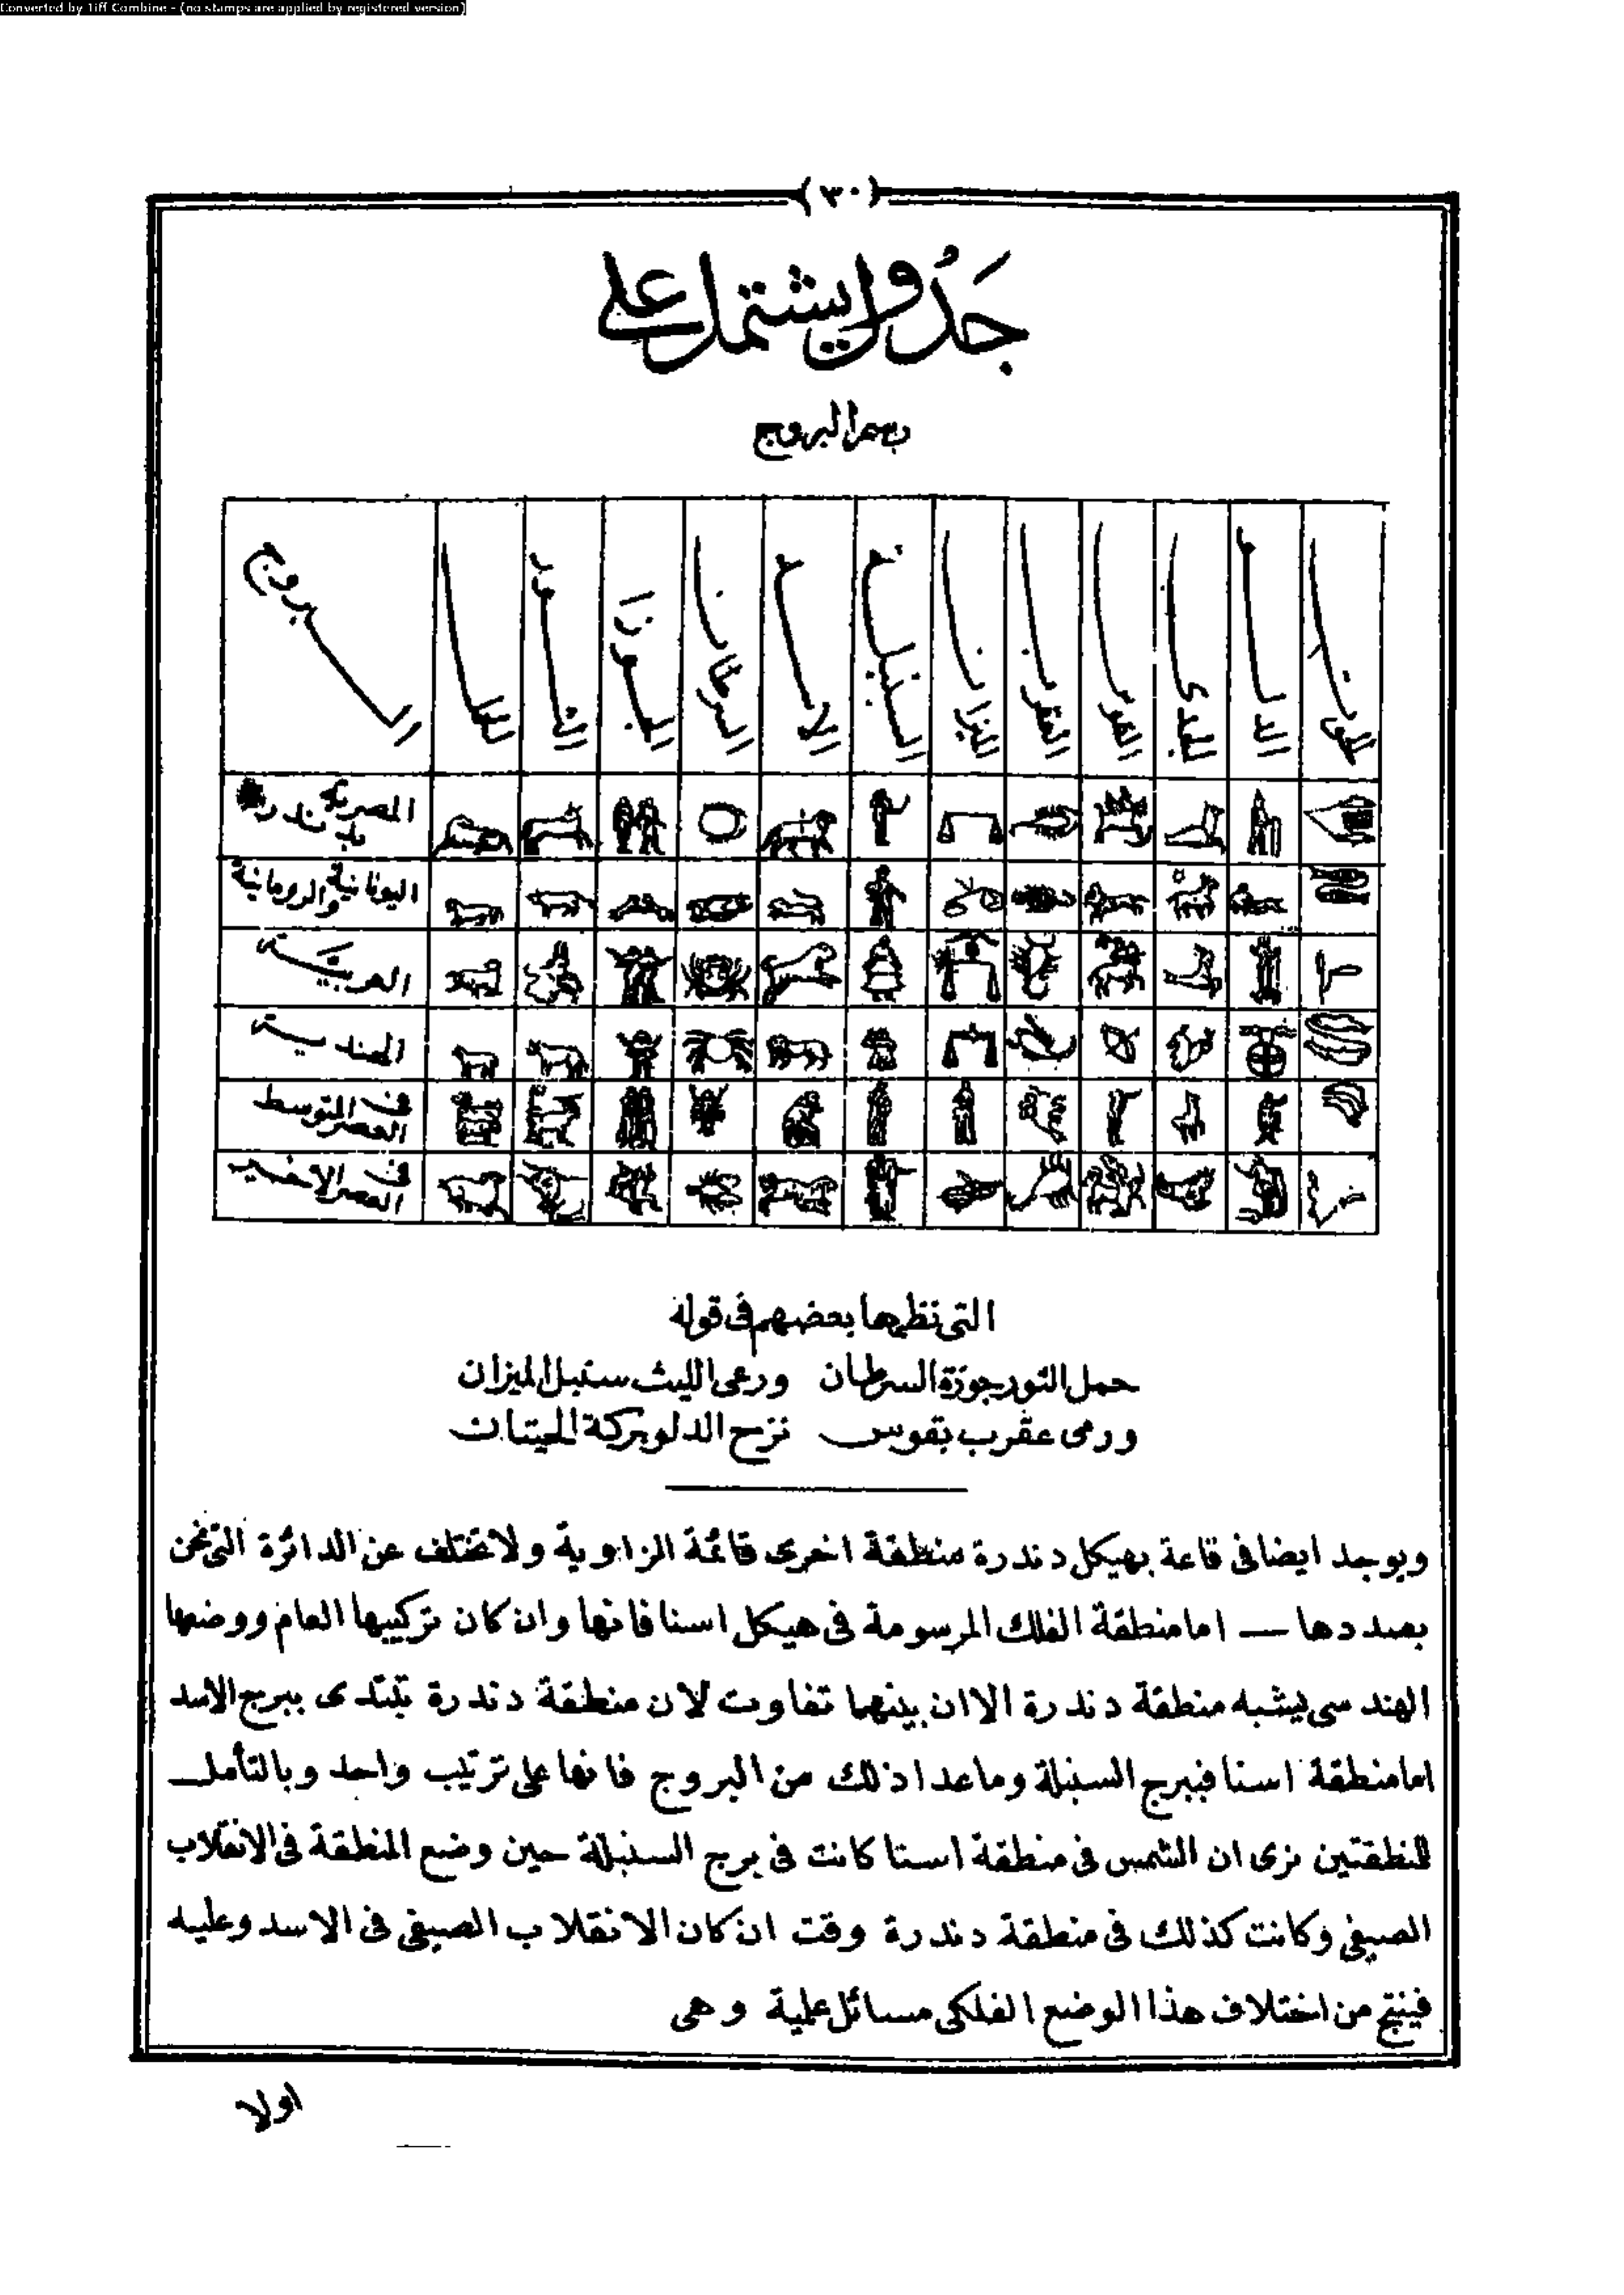 Converted by Tiff Combine - (no stamps are applied by registered version)
(٣٠)
جدول يشتمل على
رسم البروج
البروج
الحمل
الثور
الجوزا
السرطان
الاسد
السنبلة
الميزان
العقرب
القوس
الجدى
الدلو
الحوت
المصرية بدندرة
اليونانية والرومانية
العربية
الهندية
فى العصر المتوسط
فى العصر الاخير
التى نظمها بعضهم فى قوله
حمل الثور جوزة السرطان ورعى الليث سنبل الميزان
ورمى عقرب بقوس نزح الدلو بركة الحيتان
ويوجد ايضا فى قاعة بهيكل دندرة منطقة اخرى قائمة الزاوية ولا تختلف عن الدائرة التى نحن
بصددها — اما منطقة الفلك المرسومة فى هيكل اسنا فانها وان كان تركيبها العام ووضعها
الهندسى يشبه منطقة دندرة الا ان بينهما تفاوت لان منطقة دندرة تبتدى ببرج الاسد
اما منطقة اسنا فببرج السنبلة وما عدا ذلك من البروج فانها على ترتيب واحد وبالتأمل
للنطقتين نرى ان الشمس فى منطقة اسنا كانت فى برج السنبلة حين وضع المنطقة فى الانقلاب
الصيفى وكانت كذلك فى منطقة دندرة وقت ان كان الانقلاب الصيفى فى الاسد وعليه
فينتج من اختلاف هذا الوضع الفلكى مسائل علمية وهى
اولا